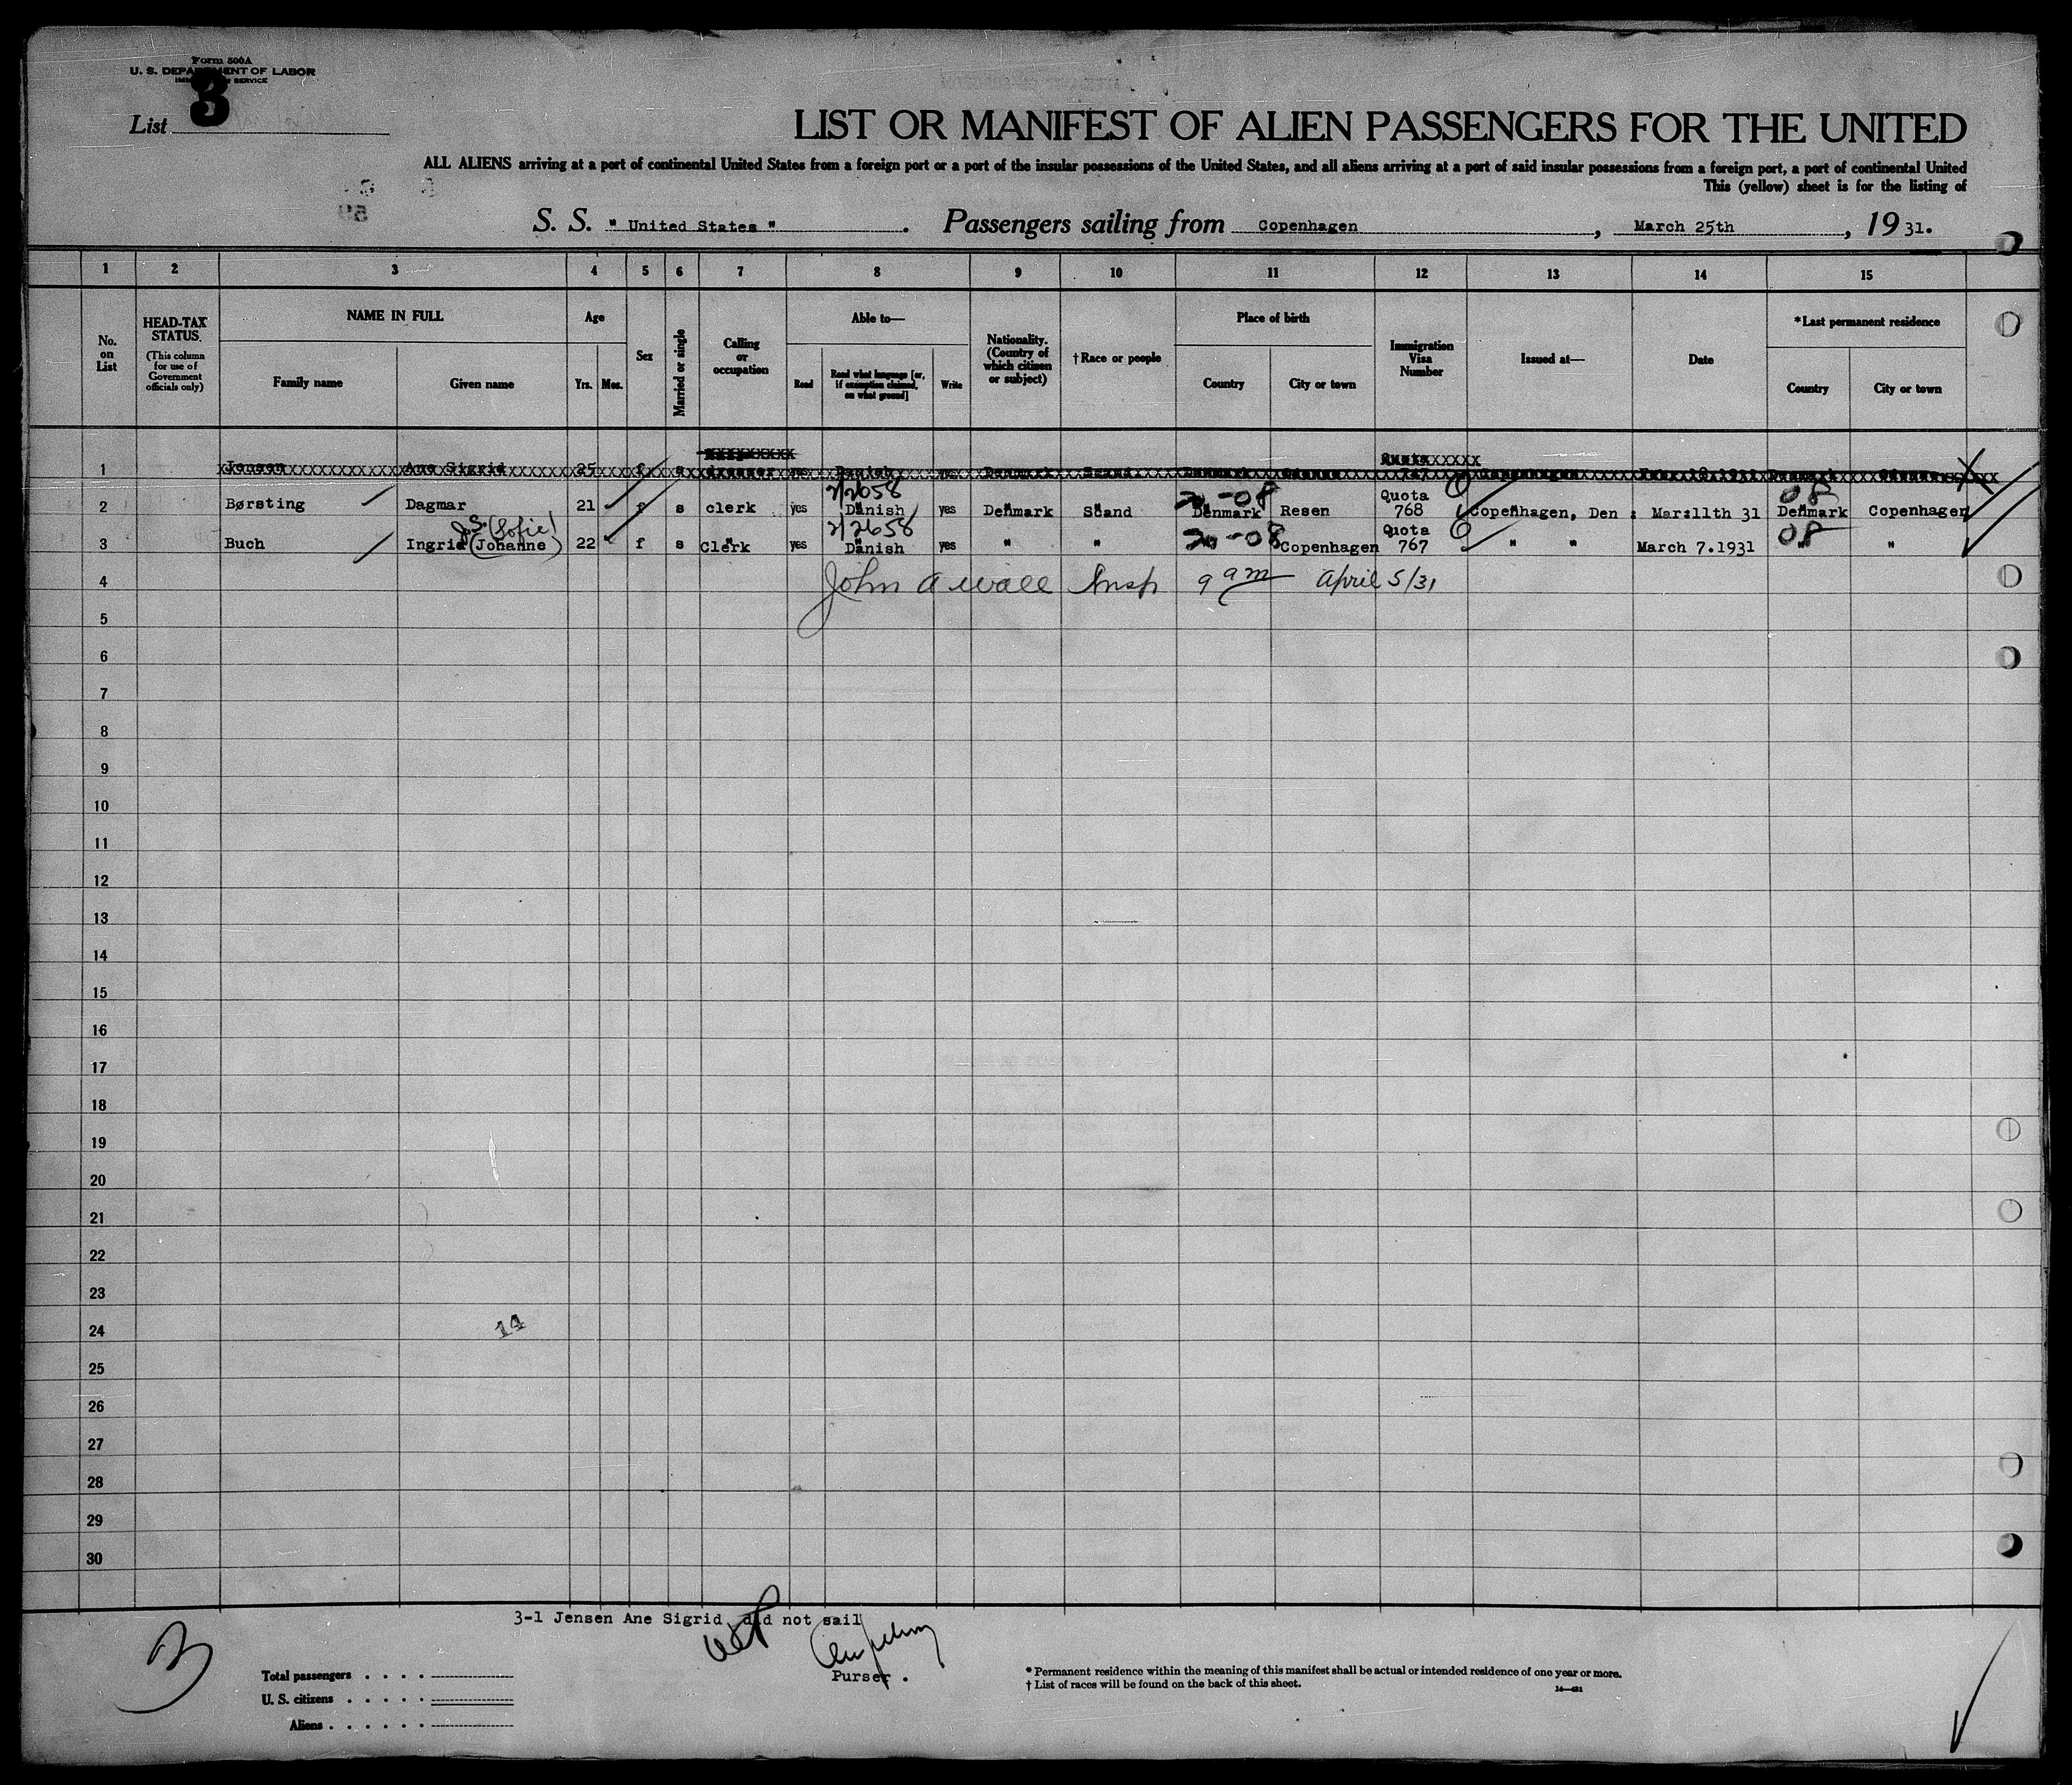 Form 500A
U. S. DEPARTMENT OF LABOR
IMMIGRATION SERVICE
List 3
LIST OR MANIFEST OF ALIEN PASSENGERS FOR THE UNITED
ALL ALIENS arriving at a port of continental United States from a foreign port or a port of the insular possessions of the United States, and all aliens arriving at a port of said insular possessions from a foreign port, a port of continental United
This (yellow) sheet is for the listing of
S. S. " United States " . Passengers sailing from Copenhagen , March 25th , 19 31.
1 2 3 4 5 6 7 8 9 10 11 12 13 14 15
No. on List
HEAD-TAX STATUS. (This column for use of Government officials only)
NAME IN FULL
Family name Given name
Age
Yrs. Mos.
Sex
Married or single
Calling or occupation
Able to—
Read Read what language [or, if exemption claimed, on what ground] Write
Nationality. (Country of which citizen or subject)
†Race or people
Place of birth
Country City or town
Immigration Visa Number
Issued at—
Date
*Last permanent residence
Country City or town
1 Jensen Ane Sigrid 25 f s Danish Denmark Scand Denmark Quota 747
2/2658 20-08 08
2 Børsting Dagmar 21 f s clerk yes Danish yes Denmark Scand Denmark Resen Quota 768 Copenhagen, Den : Mar:11th 31 Denmark Copenhagen
J.S. (Sofie) 2/2658 20-08 08
3 Buch Ingrid (Johanne) 22 f s Clerk yes Danish yes " " Copenhagen Quota 767 " " March 7.1931 " "
4 John A Wall Insp 9 am April 5/31
5
6
7
8
9
10
11
12
13
14
15
16
17
18
19
20
21
22
23
24
14
25
26
27
28
29
30
3-1 Jensen Ane Sigrid did not sail
Purser .
3
Total passengers
U. S. citizens
Aliens
* Permanent residence within the meaning of this manifest shall be actual or intended residence of one year or more.
† List of races will be found on the back of this sheet.